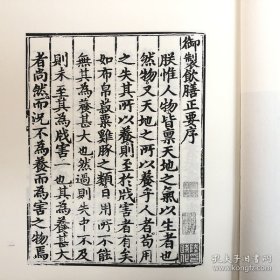 御製飲膳正要序
朕惟人物皆禀天地之氣以生者也
然物又天地之所以養乎人者苟用
之失其所以養則至於戕害者有矣
如布帛菽粟雞豚之類日用所不能
無其為養甚大也然過則失中不及
則未至其為戕害一也其為養甚大
者尚然而況不為養而為害之物焉